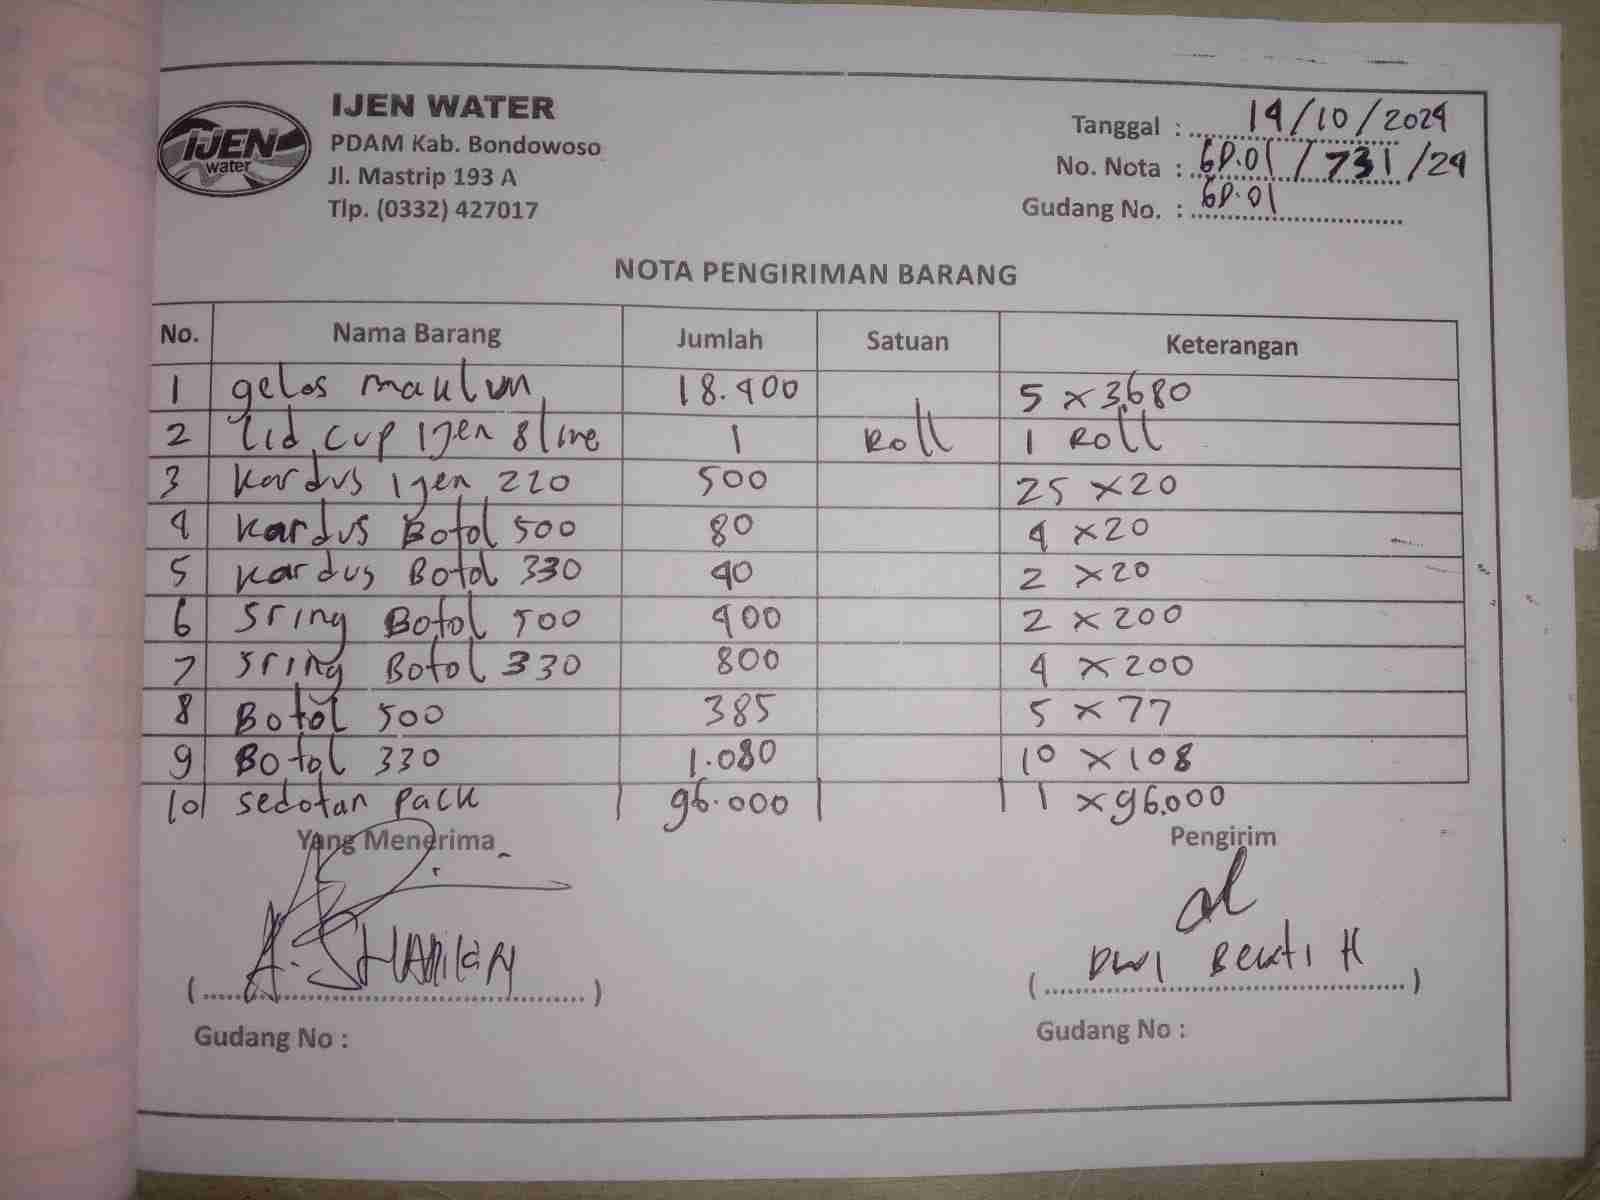 IJEN
water
IJEN WATER
PDAM Kab. Bondowoso
Jl. Mastrip 193 A
Tlp. (0332) 427017
Tanggal : 14/10/2024
No. Nota : GD.01/731/24
Gudang No. : GD.01
NOTA PENGIRIMAN BARANG
No. Nama Barang Jumlah Satuan Keterangan
1 gelas maklun 18.400 5 x 3.680
2 Lid cup Ijen 8 line 1 Roll 1 Roll
3 Kardus Ijen 220 500 25 x 20
4 Kardus Botol 500 80 4 x 20
5 Kardus Botol 330 40 2 x 20
6 Sring Botol 500 400 2 x 200
7 Sring Botol 330 800 4 x 200
8 Botol 500 385 5 x 77
9 Botol 330 1.080 10 x 108
10 sedotan pack 96.000 1 x 96.000
Yang Menerima Pengirim
Dwi Bekti H
Gudang No : Gudang No :